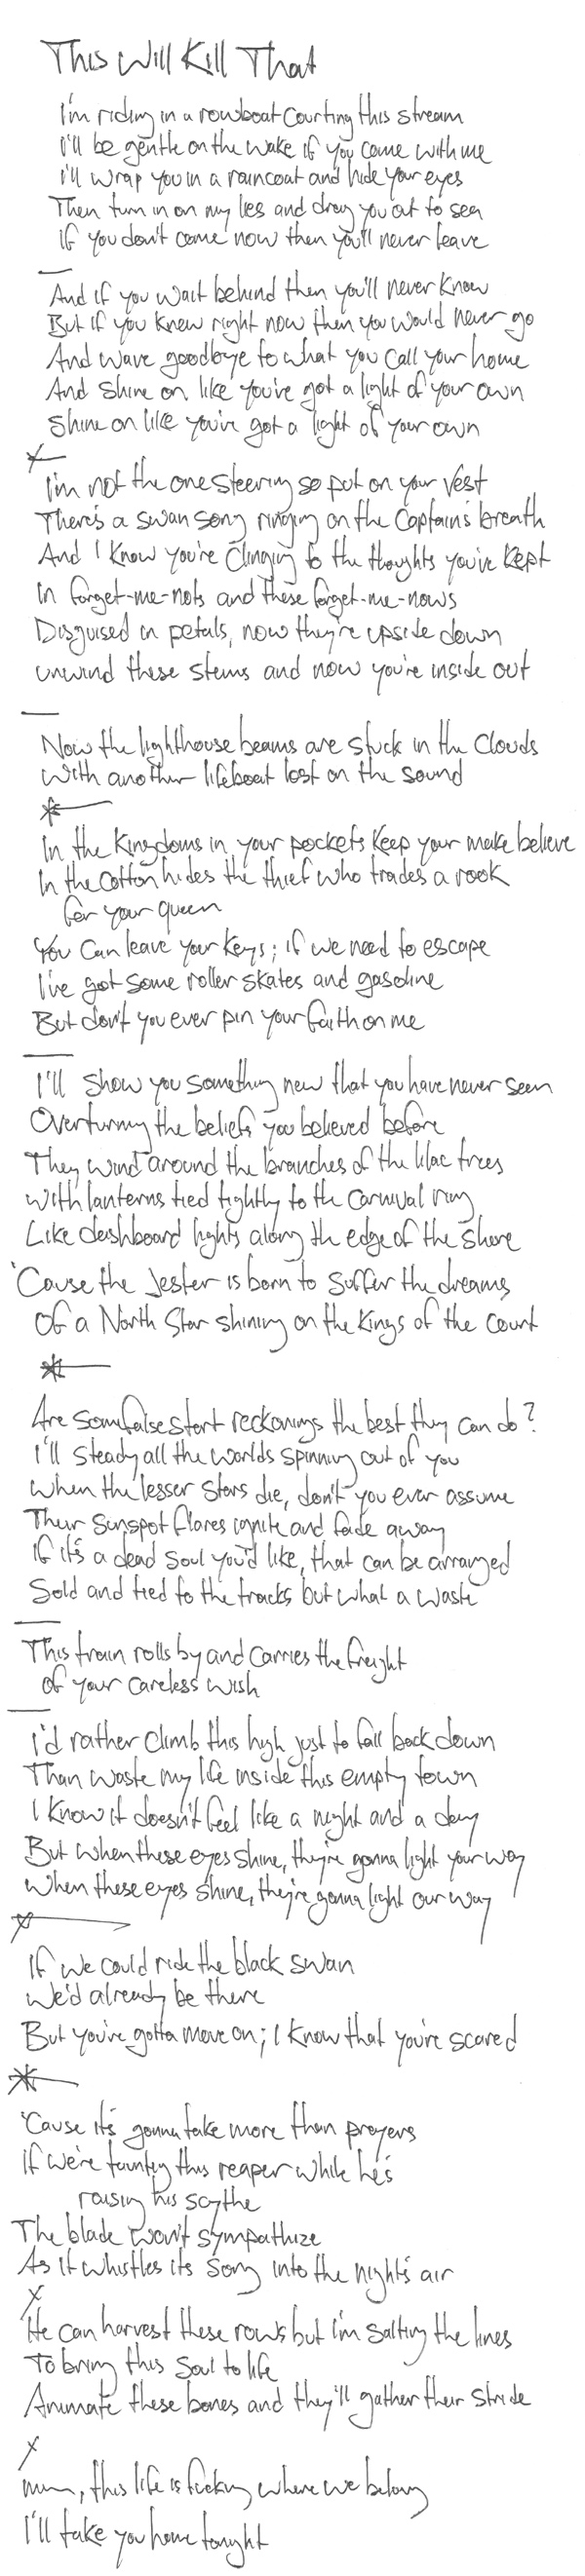 This Will Kill That
I'm riding in a rowboat courting this stream
I'll be gentle on the wake if you come with me
I'll wrap you in a raincoat and hide your eyes
Then turn in on my lies and drag you out to sea
If you don't come now then you'll never leave
And if you wait behind then you'll never know
But if you knew right now then you would never go
And wave goodbye to what you call your home
And shine on like you've got a light of your own
Shine on like you've got a light of your own
I'm not the one steering so put on your vest
There's a swan song ringing on the Captain's breath
And I know you're clinging to the thoughts you've kept
In forget-me-nots and these forget-me-nows
Disguised in petals, now they're upside down
Unwind these stems and now you're inside out
Now the lighthouse beams are stuck in the clouds
With another lifeboat lost on the sound
In the kingdoms in your pockets keep your make believe
In the cotton hides the thief who trades a rook
for your queen
You can leave your keys; if we need to escape
I've got some roller skates and gasoline
But don't you ever pin your faith on me
I'll show you something new that you have never seen
Overturning the beliefs you believed before
They wind around the branches of the lilac trees
With lanterns tied tightly to the carnival ring
Like dashboard lights along the edge of the shore
'Cause the Jester is born to suffer the dreams
Of a North Star shining on the Kings of the court
Are some false start reckonings the best they can do?
I'll steady all the worlds spinning out of you
When the lesser stars die, don't you ever assume
Their sunspot flares ignite and fade away
If it's a dead soul you'd like, that can be arranged
Sold and tied to the tracks but what a waste
This train rolls by and carries the freight
of your careless wish
I'd rather climb this high just to fall back down
Than waste my life inside this empty town
I know it doesn't feel like a night and a day
But when these eyes shine, they're gonna light your way
When these eyes shine, they're gonna light our way
If we could ride the black swan
We'd already be there
But you've gotta move on; I know that you're scared
'Cause it's gonna take more than prayers
If we're taunting this reaper while he's
raising his scythe
The blade won't sympathize
As it whistles its song into the night's air
He can harvest these rows but I'm salting the lines
To bring this soul to life
Animate these bones and they'll gather their stride
mmm, this life is fucking where we belong
I'll take you home tonight